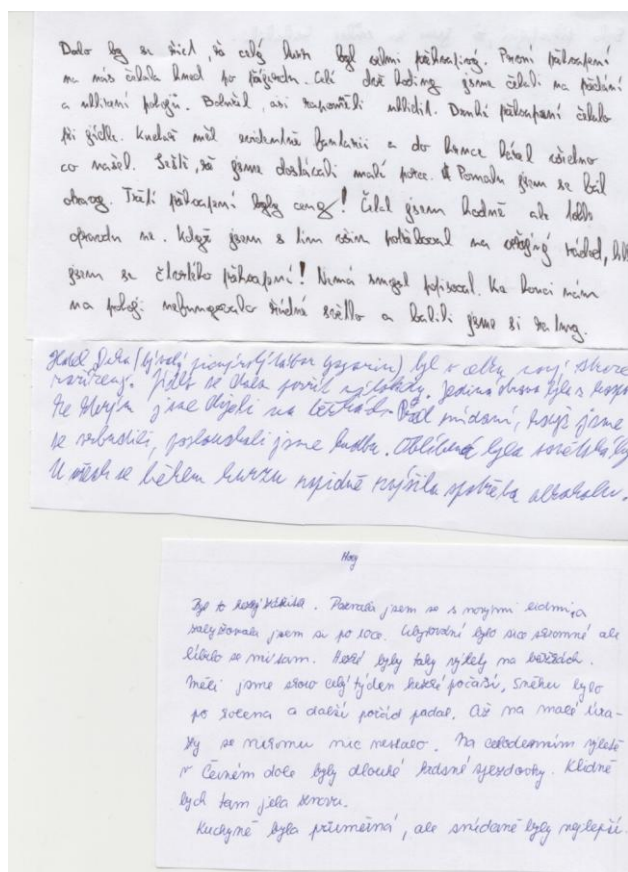 Dalo by se říct, že celý kurz byl velmi překvapivý. První překvapení
na nás čekalo hned po příjezdu. Celé dvě hodiny jsme čekali na přidání
a uklizení pokojů. Bohužel, asi zapomněli uklidit. Druhé překvapení čekalo
při jídle. Kuchař měl evidentně fantazii a do hrnce házel všechno
co našel. Ještě, že jsme dostávali malé porce. Pomalu jsem se bál
otravy. Třetí překvapení byly ceny! Čekal jsem hodně ale tohle
opravdu ne. Když jsem s tím vším potřeboval na záchod,
jsem se čtvrtého překvapení! Nemá smysl popisovat. Ke konci nám
na pokoji nefungovalo žádné světlo a balili jsme si za tmy.
Hotel (bývalý pionýrský tábor Gagarin) byl v celku
zařízený. Jídlo se dalo pozřít výjimky. Jediná
Ke jsme dojeli na běžkách. Před snídaní, když jsme
se vzbudili, poslouchali jsme hudbu. Oblíbená byla sovětská
U všech se během kurzu rapidně zvýšila spotřeba alkoholu.
Hory
Byl to hezký zážitek. Poznala jsem se s novými lidmi,a
zalyžovala jsem si po roce. Ubytování bylo sice skromné ale
líbilo se mi tam. Hezké byly taky výlety na běžkách.
Měli jsme skoro celý týden hezké počasí, sněhu bylo
po kolena a další pořád padal. Až na malé úra-
zy se nikomu nic nestalo. Na celodenním výletě
v Černém dole byly dlouhé krásné sjezdovky. Klidně
bych tam jela znovu.
Kuchyně byla průměrná, ale snídaně byly nejlepší.